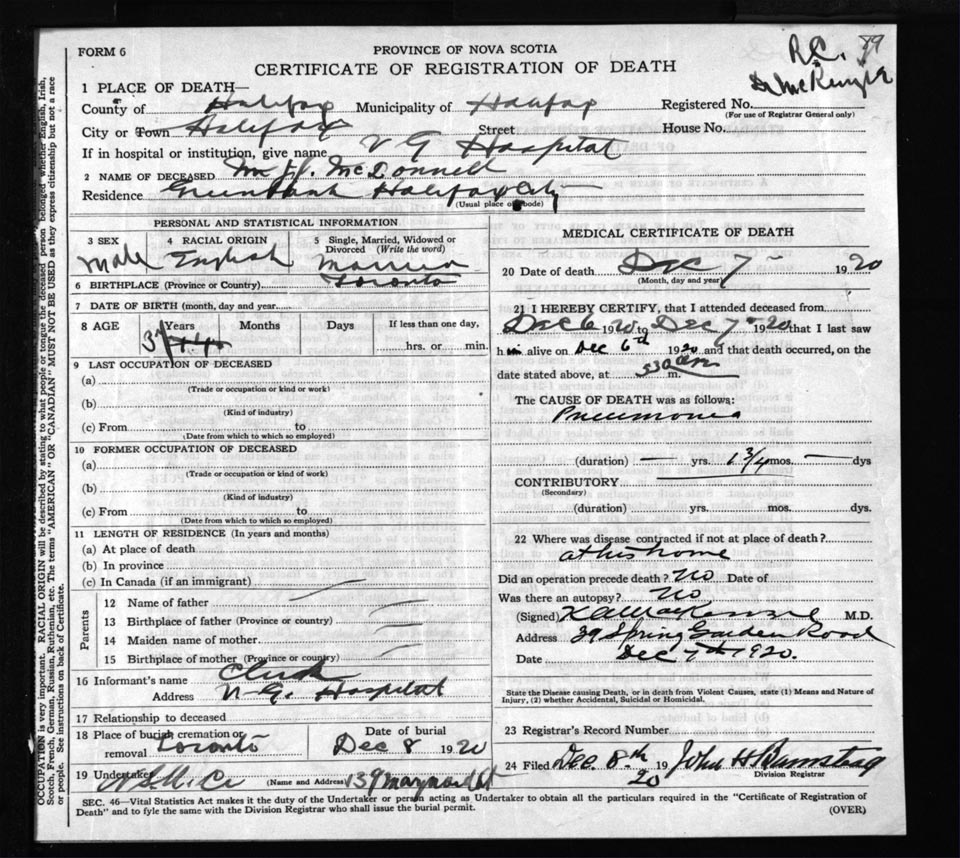 FORM 6
PROVINCE OF NOVA SCOTIA
R.C. 89
CERTIFICATE OF REGISTRATION OF DEATH
Dr McKenzie
1 PLACE OF DEATH—
County of Halifax Municipality of Halifax Registered No.
(For use of Registrar General only)
City or Town Halifax Street House No.
If in hospital or institution, give name V G Hospital
2 NAME OF DECEASED Wm J. McDonnell
Residence Greenbank Halifax City
(Usual place of abode)
PERSONAL AND STATISTICAL INFORMATION
3 SEX 4 RACIAL ORIGIN 5 Single, Married, Widowed or Divorced (Write the word)
Male English Married
6 BIRTHPLACE (Province or Country) Toronto
7 DATE OF BIRTH (month, day and year)
8 AGE Years Months Days If less than one day,
hrs. or min.
9 LAST OCCUPATION OF DECEASED
(a)
(Trade or occupation or kind or work)
(b)
(Kind of industry)
(c) From to
(Date from which to which so employed)
10 FORMER OCCUPATION OF DECEASED
(a)
(Trade or occupation or kind of work)
(b)
(Kind of industry)
(c) From to
(Date from which to which so employed)
11 LENGTH OF RESIDENCE (In years and months)
(a) At place of death
(b) In province
(c) In Canada (if an immigrant)
Parents
12 Name of father
13 Birthplace of father (Province or country)
14 Maiden name of mother
15 Birthplace of mother (Province or country)
16 Informant's name Clerk
Address V. G. Hospital
17 Relationship to deceased
18 Place of burial, cremation or removal Toronto Date of burial Dec 8 1920
19 Undertaker (Name and Address) 139 Maynard St
MEDICAL CERTIFICATE OF DEATH
20 Date of death Dec 7 1920
(Month, day and year)
21 I HEREBY CERTIFY, that I attended deceased from
Dec 6 1920 to Dec 7 1920 that I last saw
him alive on Dec 6th 1920 and that death occurred, on the
date stated above, at 530 a m.
The CAUSE OF DEATH was as follows:
Pneumonia
(duration) — yrs. 1 3/4 mos. — dys
CONTRIBUTORY
(Secondary)
(duration) yrs. mos. dys.
22 Where was disease contracted if not at place of death?
at his home
Did an operation precede death? No Date of
Was there an autopsy? No
(Signed) K A MacKenzie M.D.
Address 39 Spring Garden Road
Date Dec 7th 1920.
State the Disease causing Death, or in death from Violent Causes, state (1) Means and Nature of
Injury, (2) whether Accidental, Suicidal or Homicidal.
23 Registrar's Record Number
24 Filed Dec. 8th 1920 John H
Division Registrar
SEC. 46—Vital Statistics Act makes it the duty of the Undertaker or person acting as Undertaker to obtain all the particulars required in the "Certificate of Registration of
Death" and to fyle the same with the Division Registrar who shall issue the burial permit.
(OVER)
OCCUPATION is very important. RACIAL ORIGIN will be described by stating to what people or tongue the deceased person belonged whether English, Irish,
Scotch, French, German, Russian, Ruthenian, etc. The terms "AMERICAN" OR "CANADIAN" MUST NOT BE USED as they express citizenship but not a race
or people. See instructions on back of Certificate.